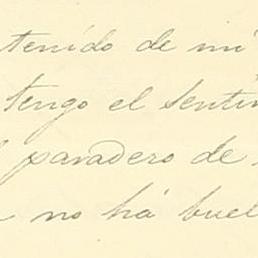 tenido de mi
tengo el senti
paradero de
no há buel